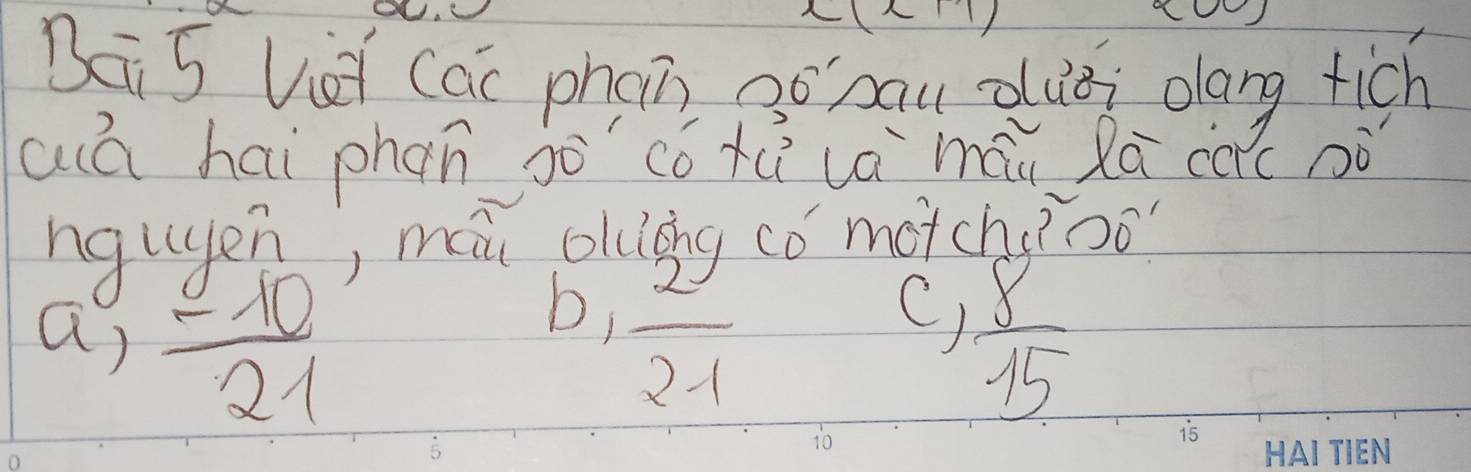 Bài 5 Viết các phân số sau dưới dạng tích
của hai phân số có tử và mẫu là các số
nguyên, mẫu dương có một chữ số
a, -10/21 b, 2/21 c, 8/15
0 5 10 15 HAI TIEN